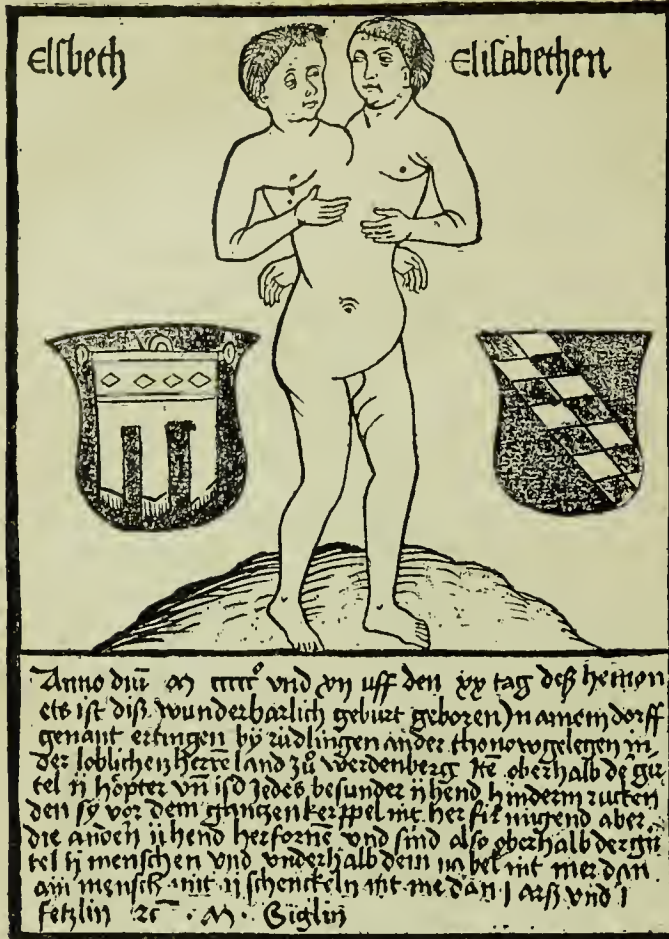 Elsbeth
Elisabethen
Anno dm̄ M ccccc° vnd xij uff den xx tag deß hemon
ets ist diß wunderbarlich geburt geboren) in amem dorff
genant ertingen by rüdlingen an der thonow gelegen in
der loblichen herrē land zů werdenberg Itē oberhalb dē gür
tel ij höpter vn̄ jedes besunder ij hend hinderm rucken
den sy vor dem gantzen nit her für mügend aber
die andern ij hend herfornē vnd sind also oberhalb der gür
tel ij menschen vnd vnderhalb dem nabel nit mer dan
ain mensch mit ij schenckeln nit me dan j arß vnd j
fetzlin ⁊c̄ · M · Siglin